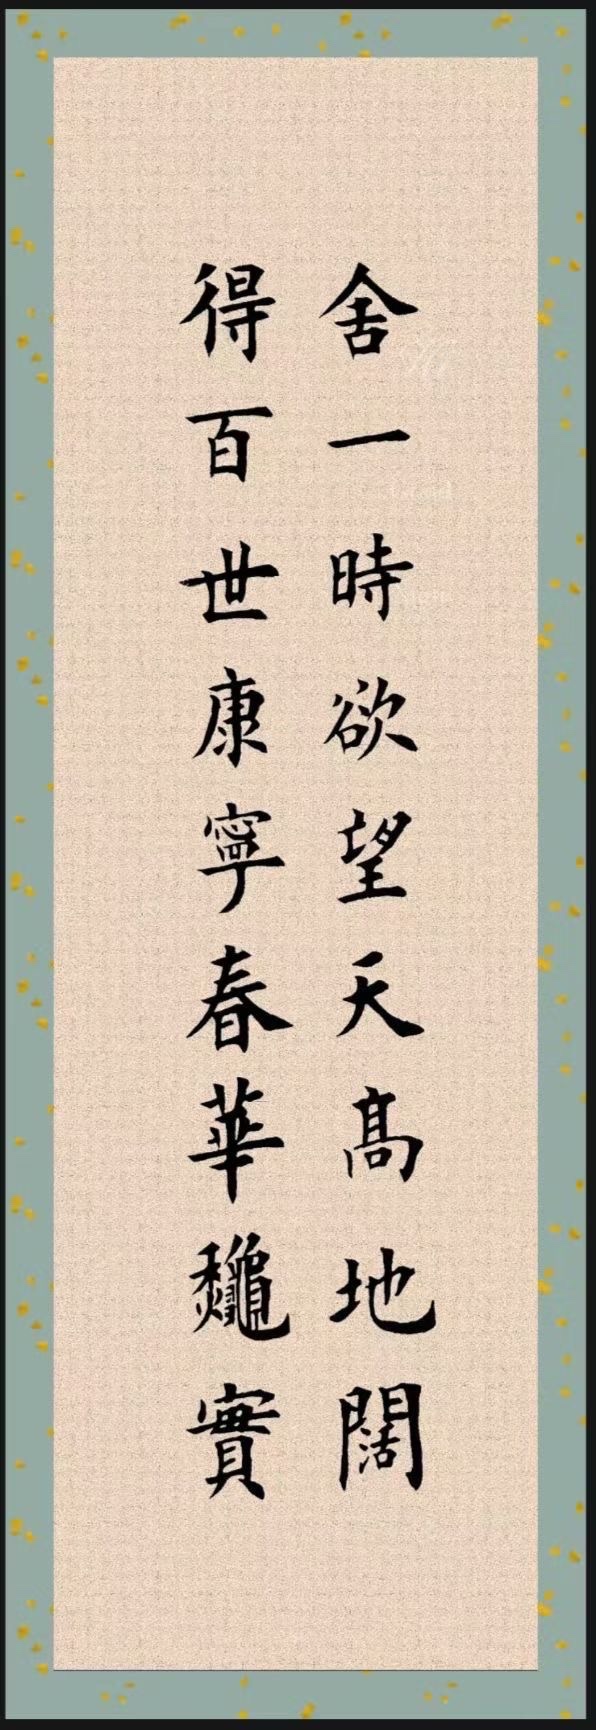 舍一時欲望天高地闊
得百世康寧春華龝實